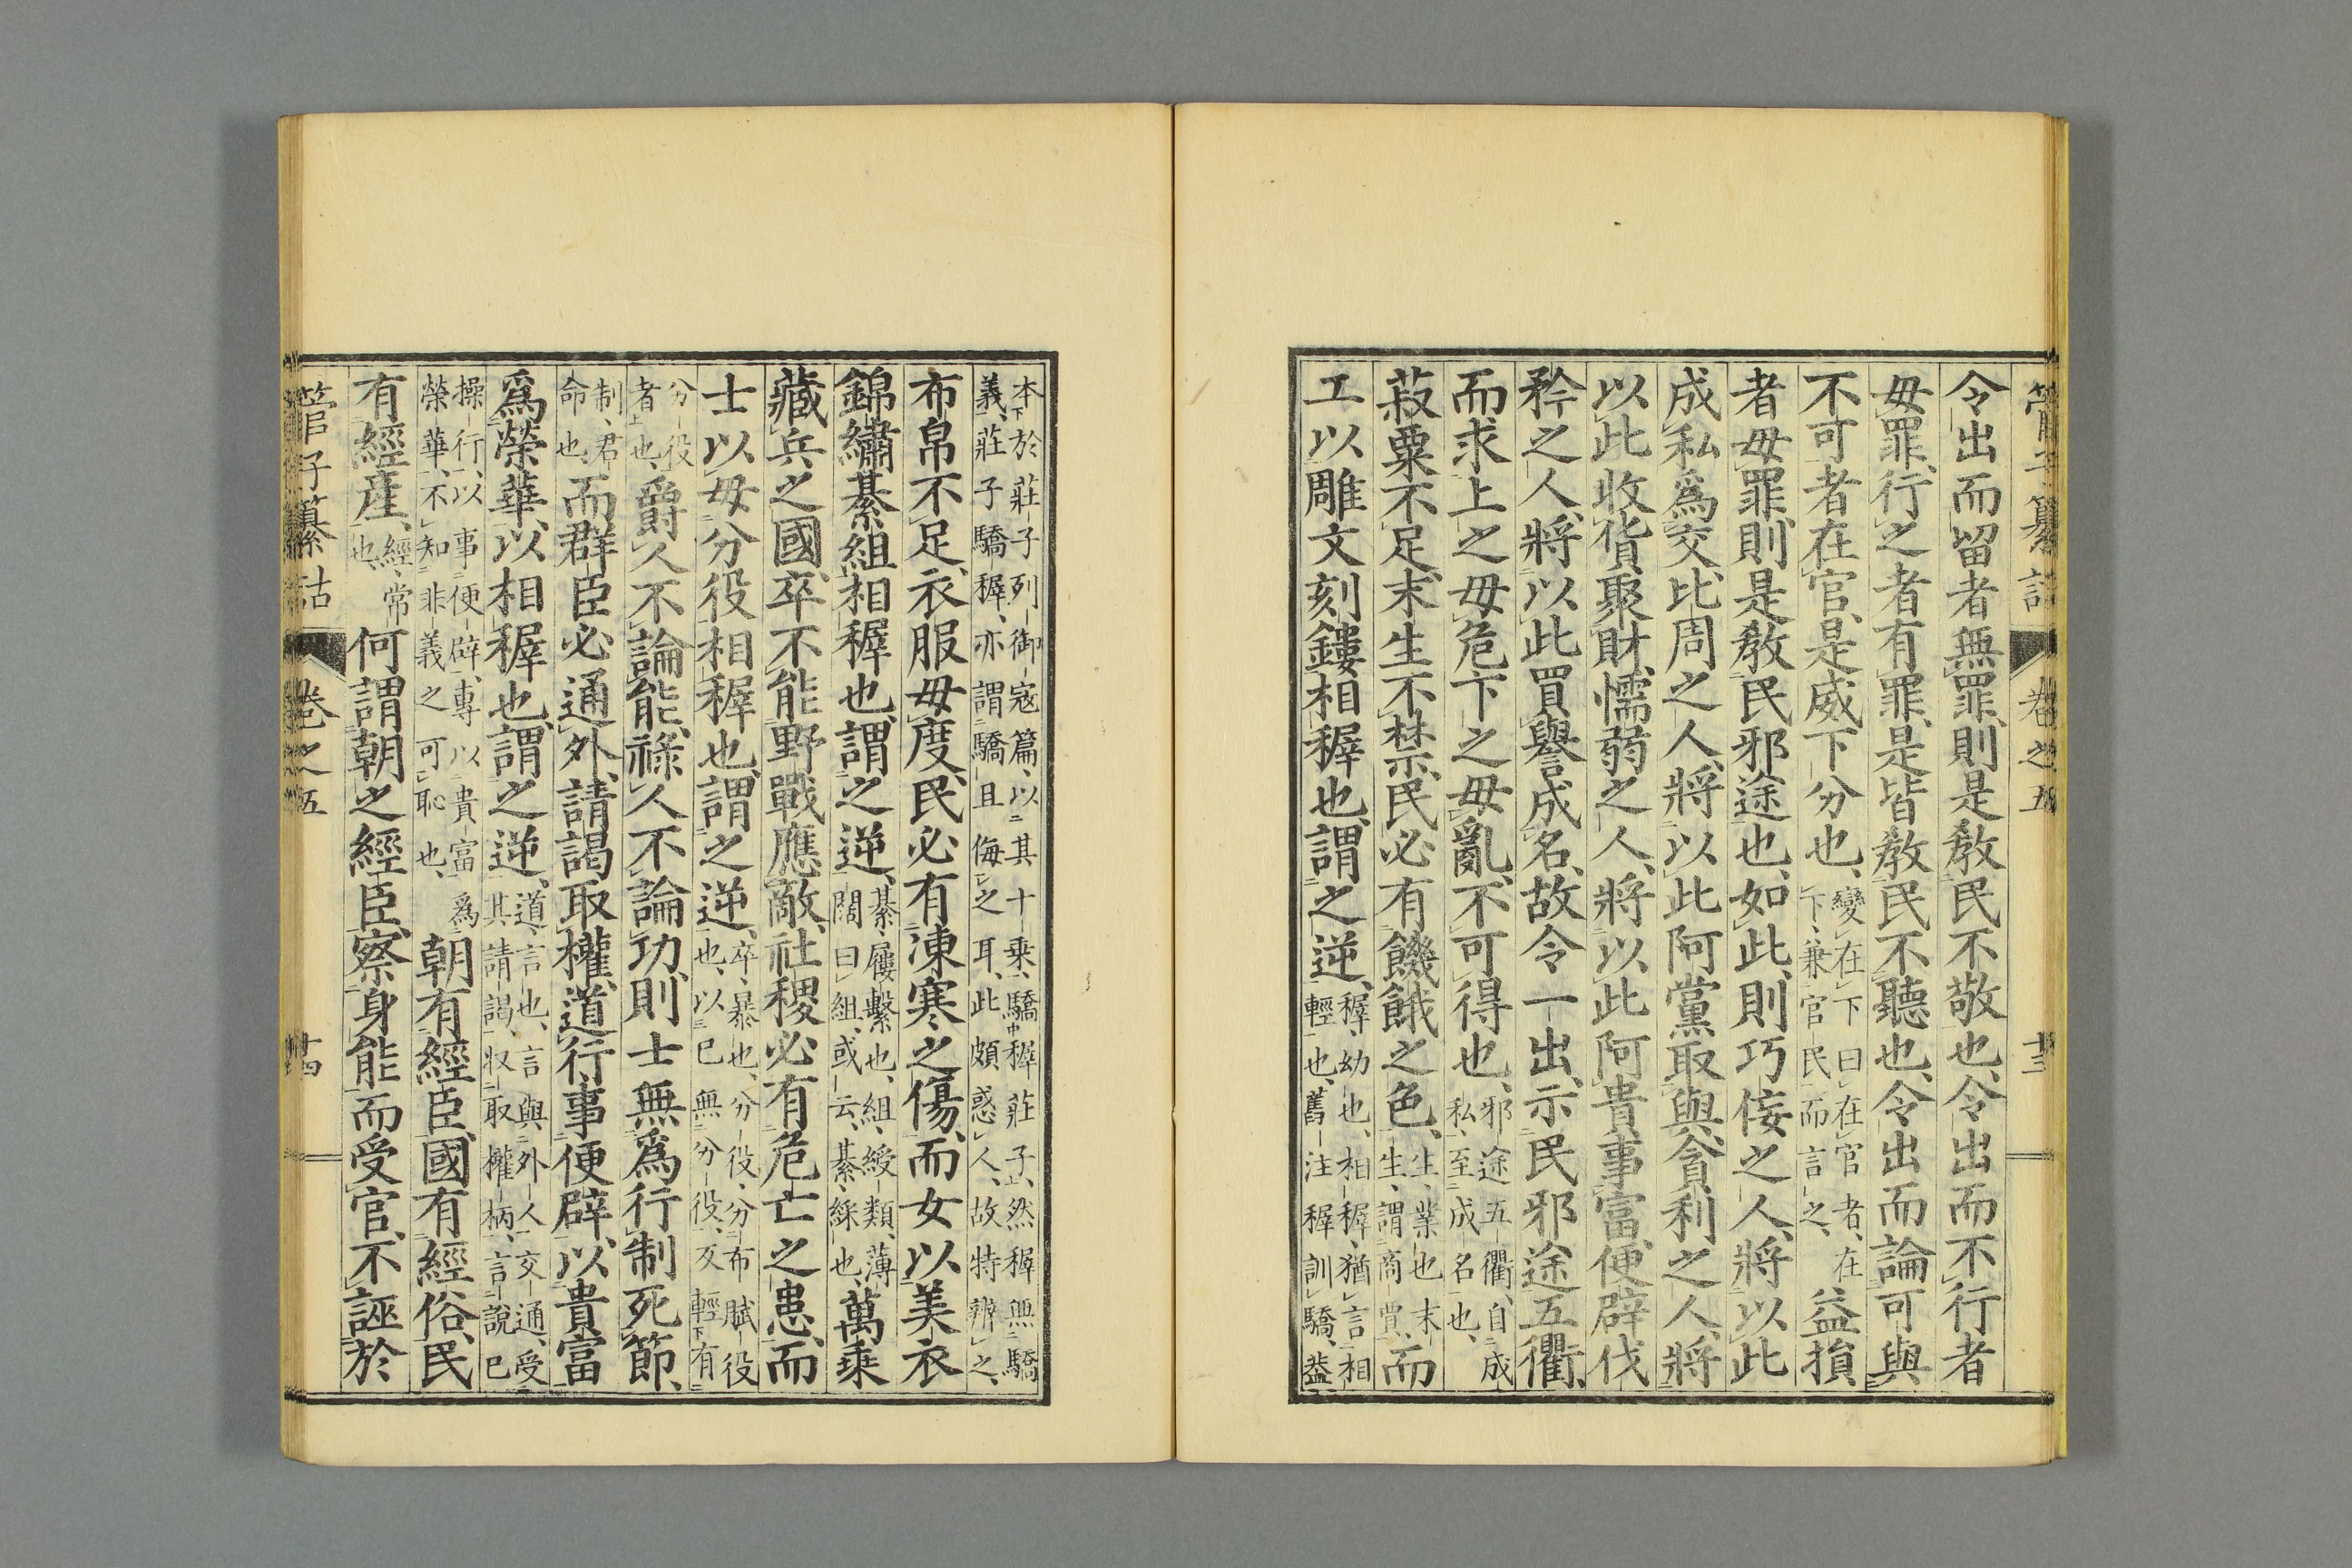 管子纂詁 卷之五 十三
令出而留者無罪、則是教民不敬也、令出而不行者
毋罪、行之者有罪、是皆教民不聽也、令出而論可與
不可者在官、是威下分也、變在下曰在官者、在
下、兼官民而言之、益損
者毋罪、則是教民邪途也、如此、則巧佞之人、將以此
成私爲交、比周之人、將以此阿黨取與、貪利之人、將
以此收貨聚財、懦弱之人、將以此阿貴事富、便辟伐
矜之人、將以此買譽成名、故令一出、示民邪途五衢、
而求上之毋危下之毋亂、不可得也、邪途五衢、自成
私、至成名也、
菽粟不足、末生不禁、民必有饑餓之色、生、業也、末
生、謂商賈、而
工以雕文刻鏤相穉也、謂之逆、穉、幼也、相穉、猶言相
輕也、舊注穉訓驕、葢
本於莊子列御寇篇、以其十乘、驕穉莊子、然穉無驕
義、莊子驕穉、亦謂驕且侮之耳、此頗惑人、故特辨之、
布帛不足、衣服毋度、民必有凍寒之傷、而女以美衣
錦繡綦組相穉也、謂之逆、綦、屨繫也、組、綬類、薄
闊曰組、或云、綦、綵也、萬乘
藏兵之國、卒不能野戰應敵、社稷必有危亡之患、而
士以毋分役相穉也、謂之逆、卒、暴也、分役、分布賦役
也、以己無分役、反輕有
分役
者也、爵人不論能、祿人不論功、則士無爲行制死節、
制、君
命也、而群臣必通外、請謁取權、道行事便辟、以貴富
爲榮華、以相穉也、謂之逆、道、言也、言與外人交通、受
其請謁、收取權柄、言說己
操行、以事便辟、專以貴富爲
榮華、不知非義之可恥也、朝有經臣、國有經俗、民
有經産、經、常
也、何謂朝之經臣、察身能而受官、不誣於
管子纂詁 卷之五 十四